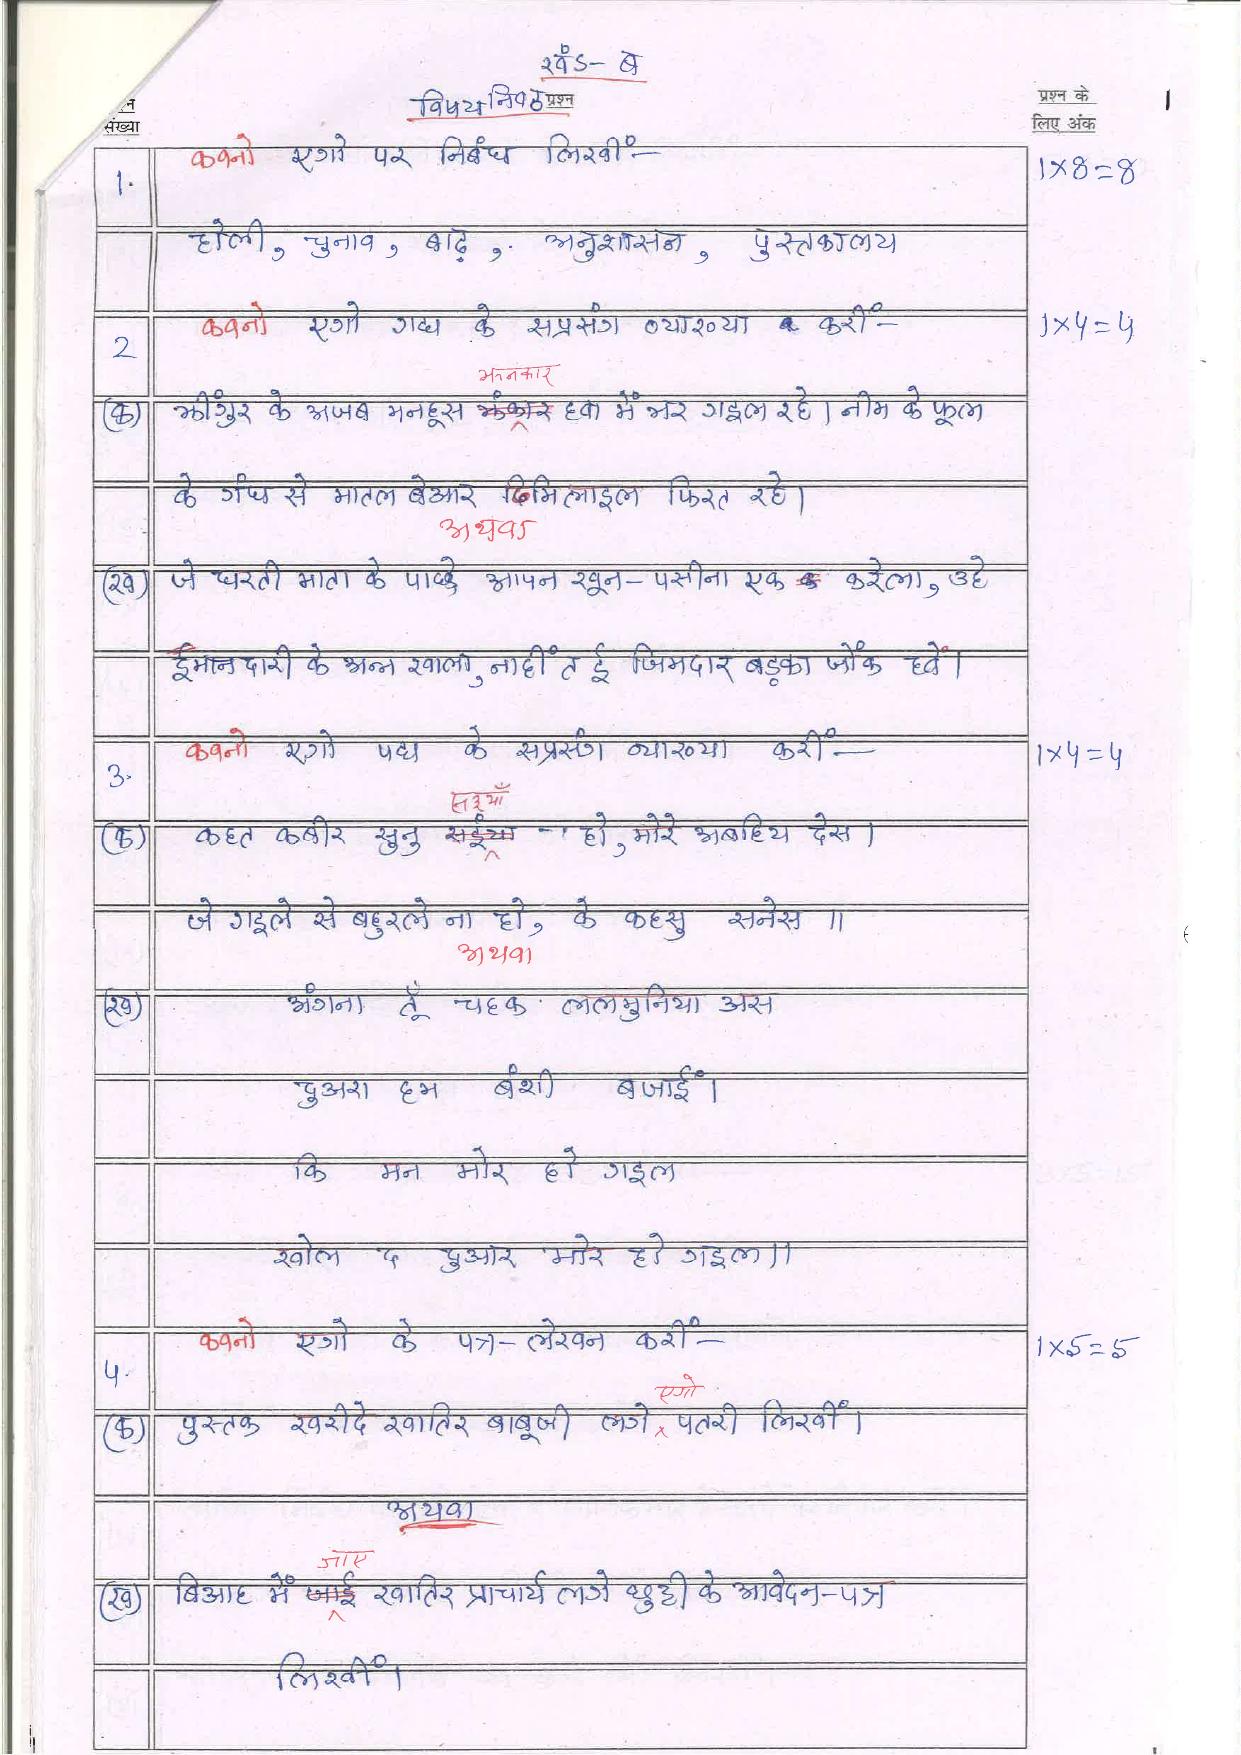 खंड- ब
विषयनिष्ठ प्रश्न
प्रश्न के
लिए अंक
1
न
संख्या
1. कवनो एगो पर निबंध लिखीं:— 1×8=8
होली, चुनाव, बाढ़, अनुशासन, पुस्तकालय
2 कवनो एगो गद्य के सप्रसंग व्याख्या करीं:- 1×4=4
झनकार
(क) झींगुर के अजब मनहूस झंकार हवा में भर गइल रहे। नीम के फूल
के गंध से मातल बेआर दिमिलाइल फिरत रहे।
अथवा
(ख) जे धरती माता के पाछे आपन खून-पसीना एक करेला, उहे
ईमानदारी के अन्न खाला, नाहीं त ई जिमदार बड़का जोंक हवें।
3. कवनो एगो पद्य के सप्रसंग व्याख्या करीं:— 1×4=4
सइयाँ
(क) कहत कबीर सुनु सईंया - हो, मोरे अबहिय देस।
जे गइले से बहुरले ना हो, के कहसु सनेस॥
अथवा
(ख) अंगना तूँ चहक ललमुनिया अस
दुअरा हम बंशी बजाईं।
कि मन मोर हो गइल
खोल द दुआर मोर हो गइल॥
4. कवनो एगो के पत्र-लेखन करीं:— 1×5=5
एगो
(क) पुस्तक खरीदे खातिर बाबूजी लगे पतरी लिखीं।
अथवा
जाए
(ख) बिआह में जाई खातिर प्राचार्य लगे छुट्टी के आवेदन-पत्र
लिखीं।